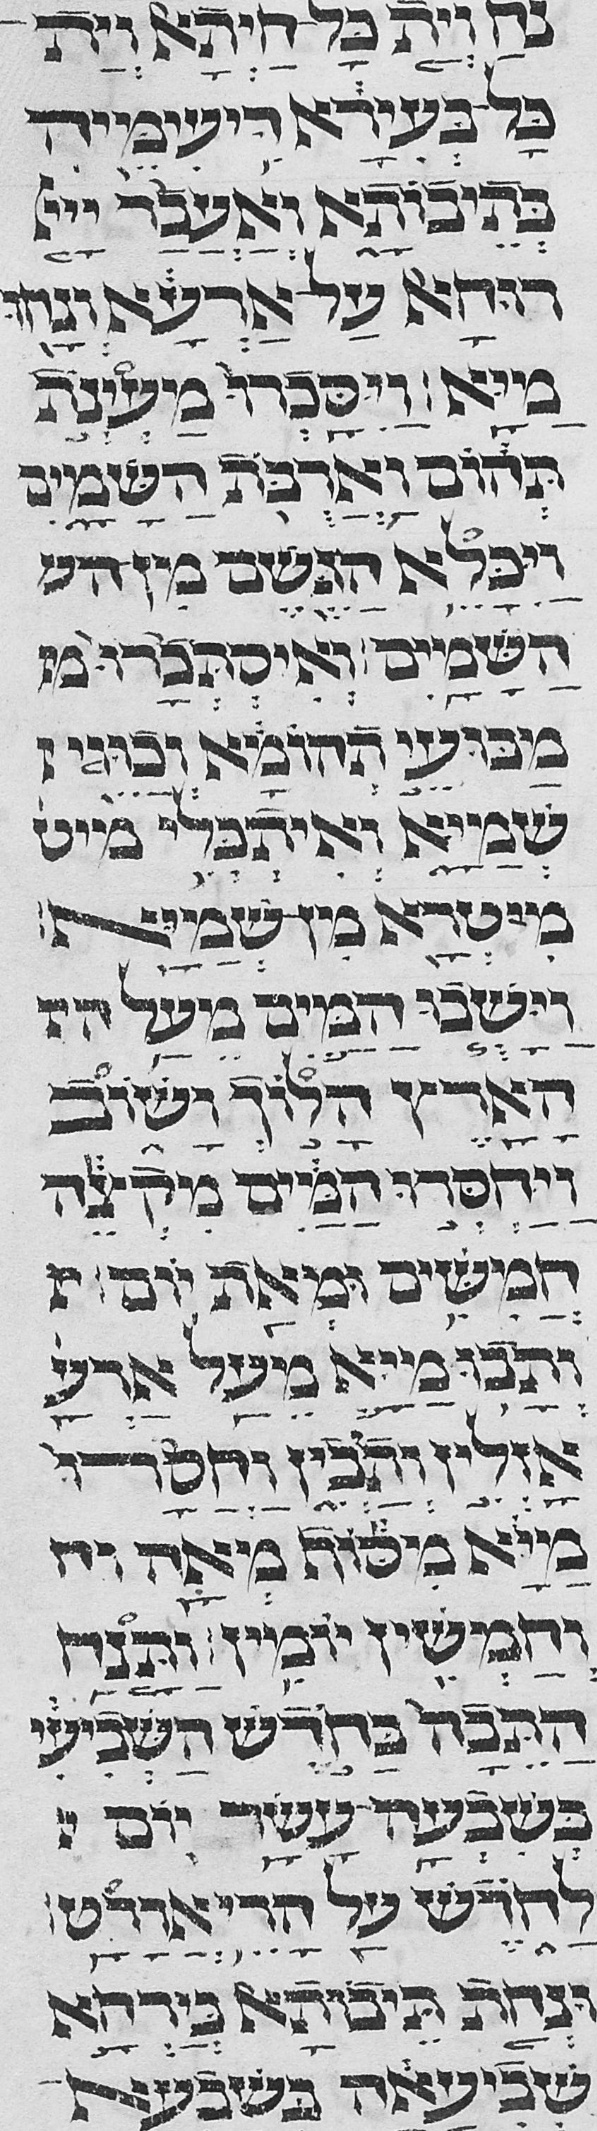 נח וית כל חיתא וית
כל בעירא דיעימיה
בתיבותא ואעבר ייי
רוחא על ארעא ונחו
מיא׃ ויסכרו מעינת
תהום וארבת השמים
ויכלא הגשם מן הש
השמים׃ ואיסתכרו מ
מבועי תהומא וכווי
שמיא ואיתכלי מיט
מיטרא מן שמיא׃
וישבו המים מעל ה
הארץ הלוך ושוב
ויחסרו המים מקצה
חמשים ומאת יום׃
ותבו מיא מעל ארע
אזלין ותבין וחסרו
מיא מסות מאה וח
וחמשין יומין׃ ותנח
התבה בחדש השביעי
בשבעה עשר יום
לחדש על הרי אררט׃
ונחת תיבותא בירחא
שביעאה בשבעא